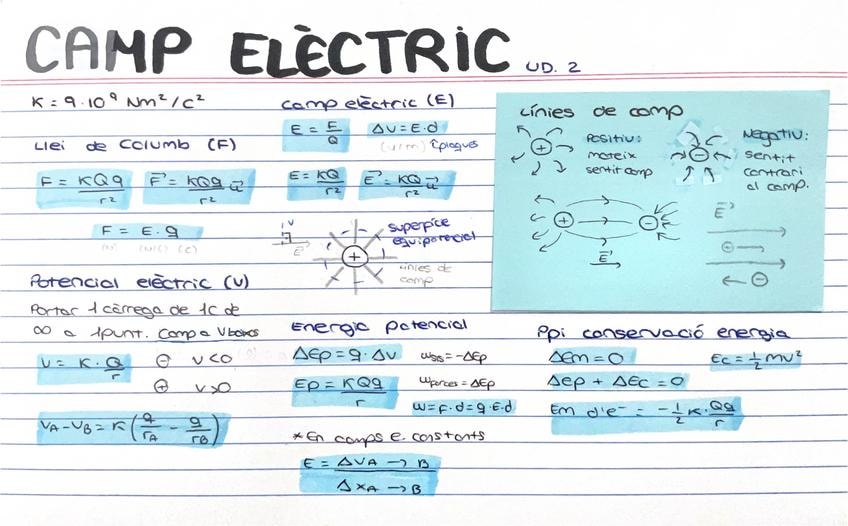 CAMP ELÈCTRIC UD. 2
K = 9·10⁹ Nm²/C²
Llei de Columb (F)
F = KQq/r²  F⃗ = KQq/r² u⃗
F = E·q
(N) (N/C) (C)
Potencial elèctric (V)
Portar 1 càrrega de 1C de
∞ a 1 punt. Camp a V baixos
V = K·Q/r  ⊖ V<0
⊕ V>0
VA-VB = K(q/rA - q/rB)
camp elèctric (E)
E = F/Q  ΔV = E·d
(V/m) plaques
E = KQ/r²  E⃗ = KQ/r² u⃗
V
E⃗
+
superfíce
equipotencial
línies de
camp
Energia potencial
ΔEp = q·ΔV  Wss = -ΔEp
Ep = KQq/r  Wforces = ΔEp
W = F·d = q·E·d
*En camps e. constants
E = ΔVA → B / ΔxA → B
Línies de camp
+ Positiu:
mateix
sentit camp
- Negatiu:
sentit
contrari
al camp.
+ -
E⃗
E⃗
⊖
⊖
Ppi conservació energia
ΔEm = 0  Ec = ½ mv²
ΔEp + ΔEc = 0
Em d'e⁻ = -½ K·Qq/r